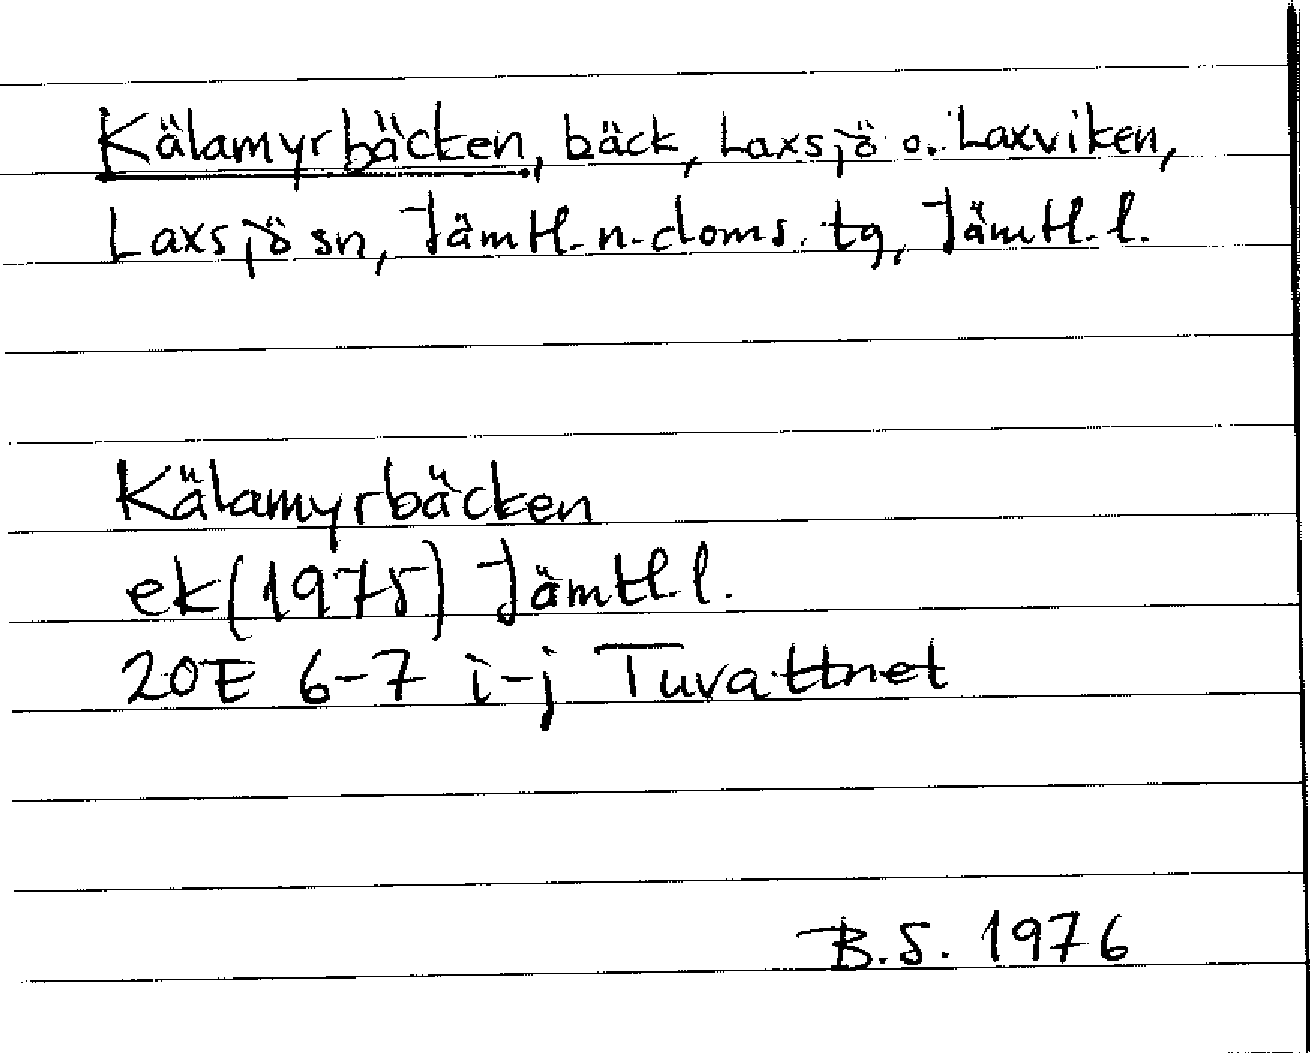 Kälamyrbäcken, bäck, Laxsjö o. Laxviken,
Laxsjö sn, Jämtl. n. doms. tg, Jämtl. l.
Kälamyrbäcken
ek(1975) Jämtl l.
20E 6-7 i-j Tuvattnet
B.S. 1976